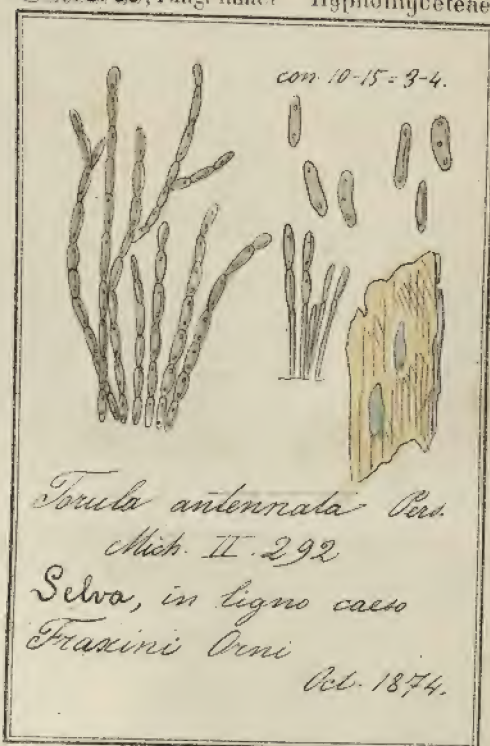 Hyphomyceteae
con. 10-15 = 3-4.
Torula antennata Pers.
Mich. II. 292
Selva, in ligno caeso
Fraxini Orni
Oct. 1874.